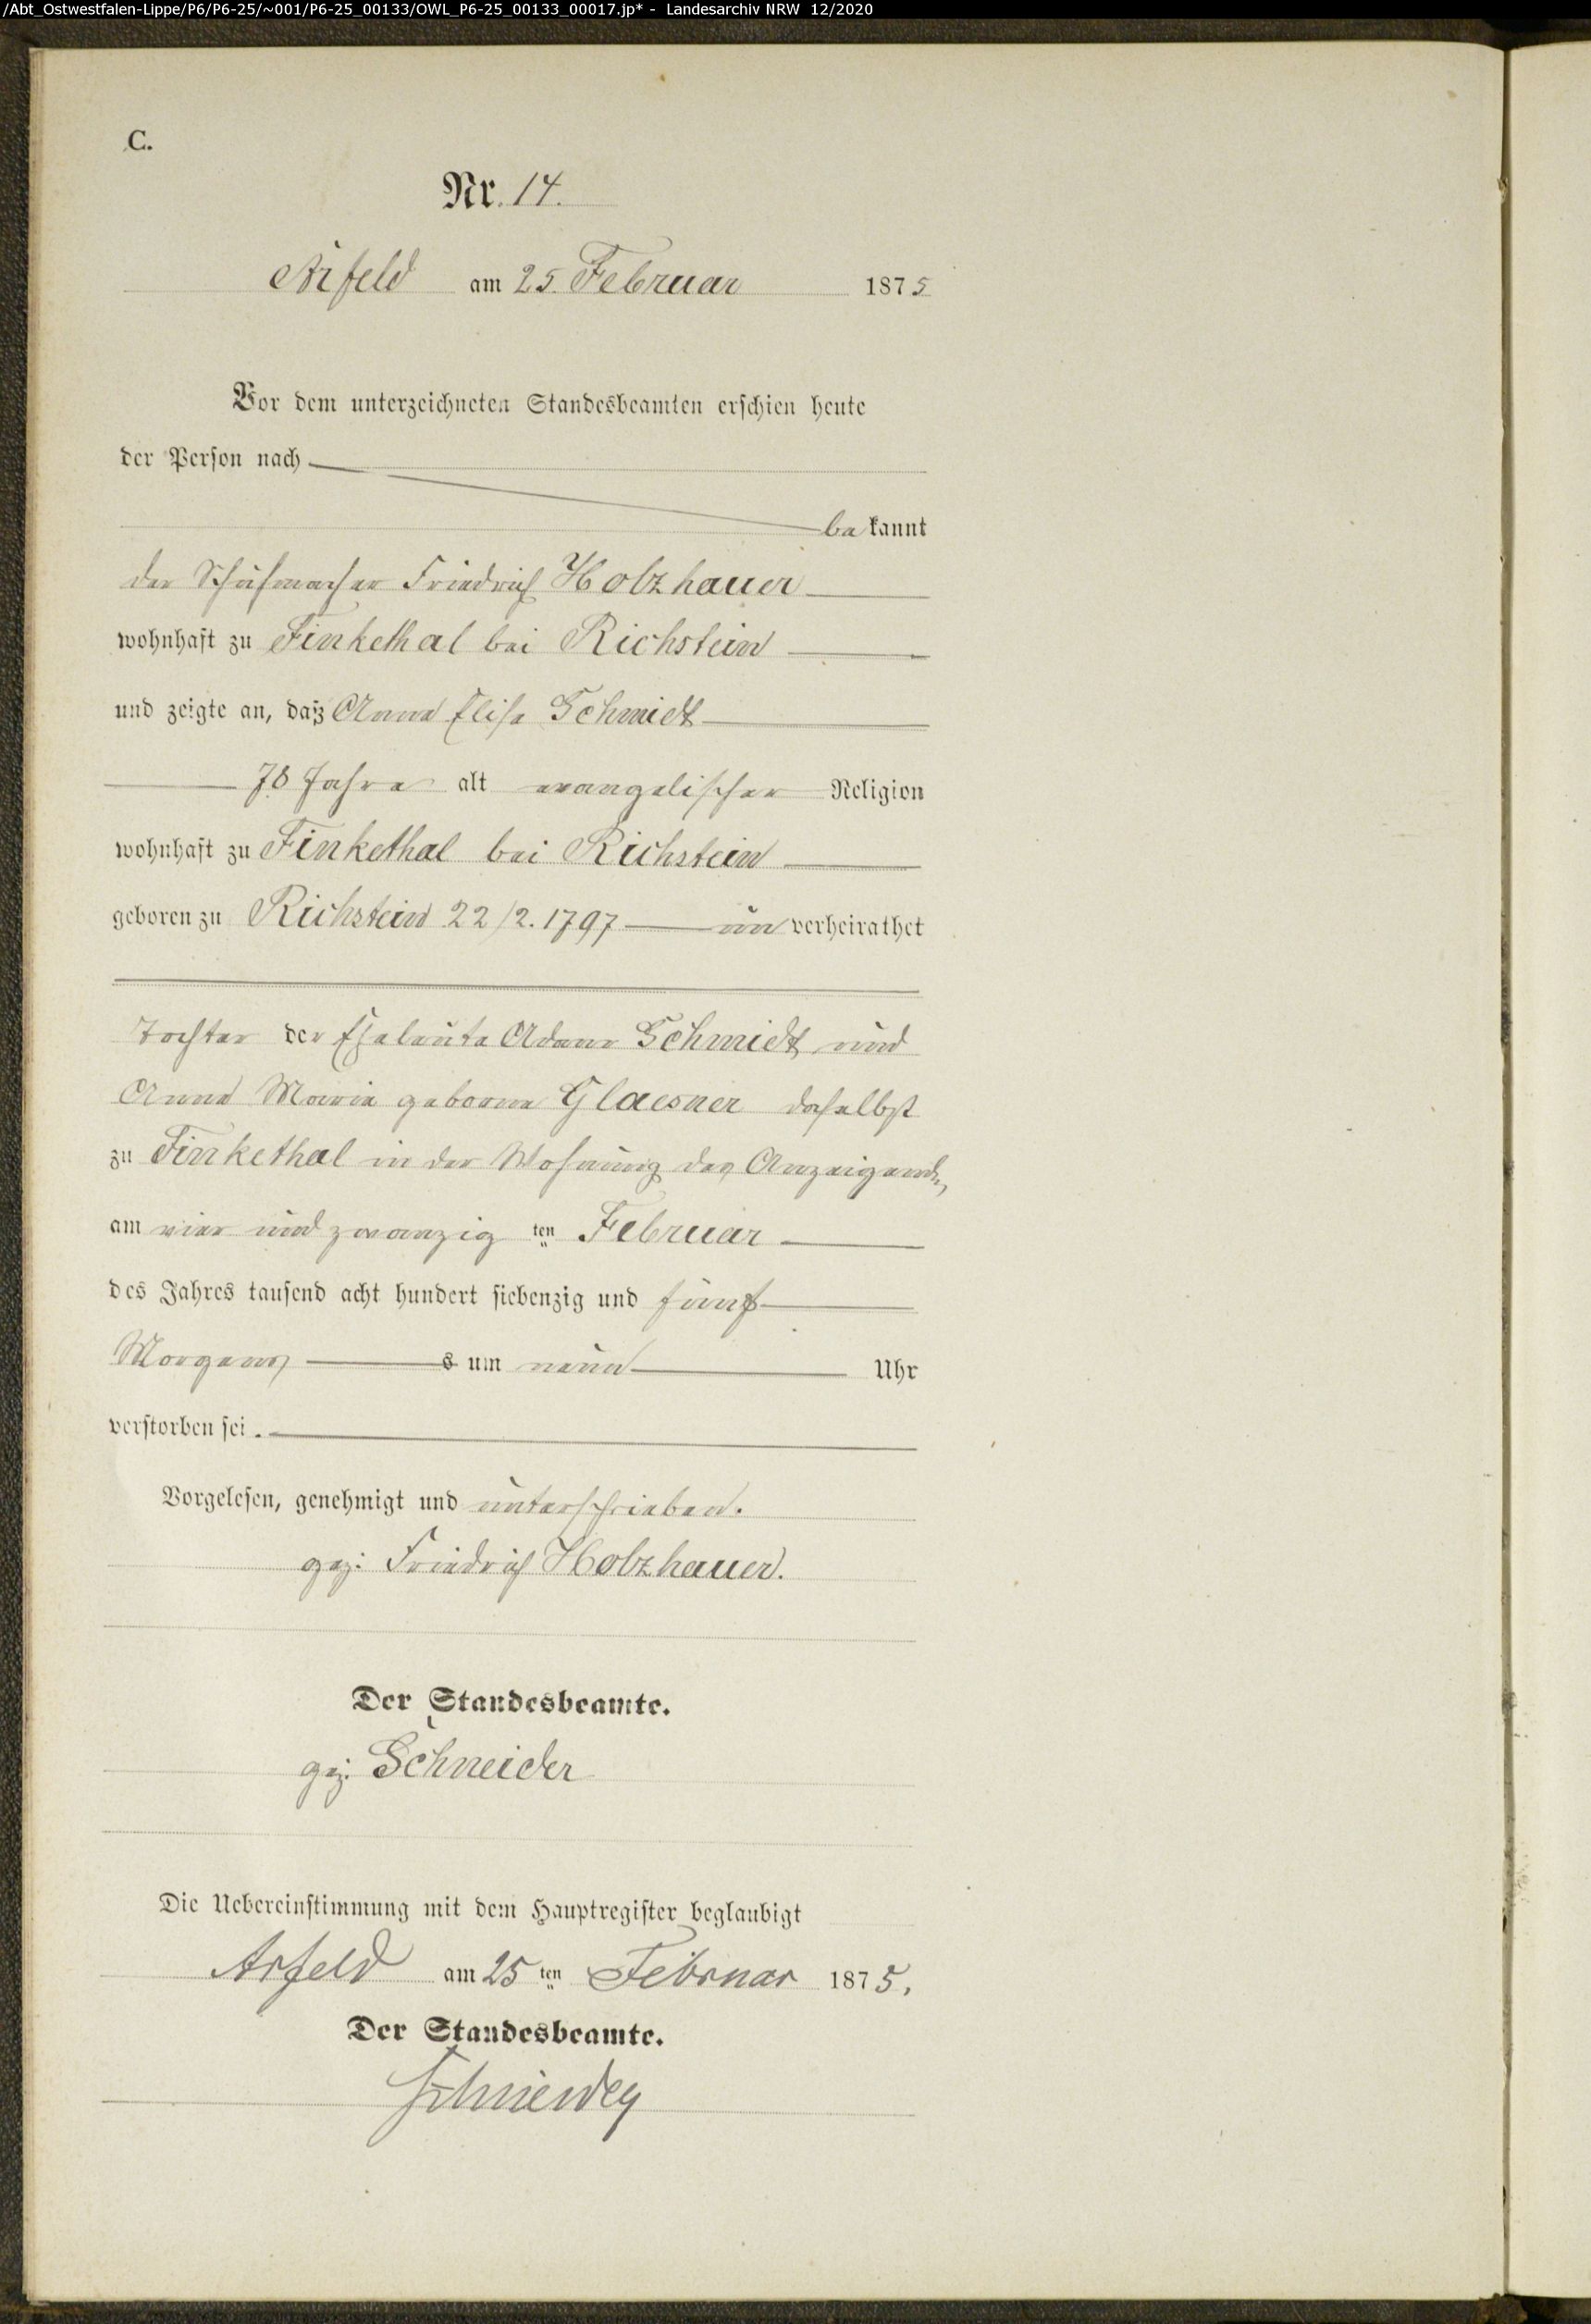 /Abt_Ostwestfalen-Lippe/P6/P6-25/~001/P6-25_00133/OWL_P6-25_00133_00017.jp* - Landesarchiv NRW 12/2020
C.
Nr. 14.
Arfeld am 25. Februar 1875
Vor dem unterzeichneten Standesbeamten erschien heute
der Person nach
bekannt
der Schuhmacher Friedrich Holzhauer
wohnhaft zu Finkethal bei Richstein
und zeigte an, daß Anna Elisa Schmidt
78 Jahre alt evangelischer Religion
wohnhaft zu Finkethal bei Richstein
geboren zu Richstein 22/2. 1797 unverheirathet
Tochter der Eheleute Adam Schmidt und
Anna Maria geborne Glaesner daselbst
zu Finkethal in der Wohnung des Anzeigenden,
am vier und zwanzig ten Februar
des Jahres tausend acht hundert siebenzig und fünf
Morgens s um neun Uhr
verstorben sei.
Vorgelesen, genehmigt und unterschrieben.
gez: Friedrich Holzhauer.
Der Standesbeamte.
gez: Schneider
Die Uebereinstimmung mit dem Hauptregister beglaubigt
Arfeld am 25 ten Februar 1875.
Der Standesbeamte.